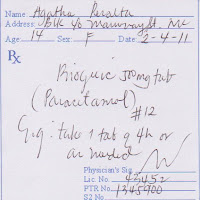 Name Agatha Peralta
Address: Blk 40 St. MC
Age 14 Sex: F Date 2-4-11
Rx
500mg tab
(Paracetamol)
#12
Sig: take 1 tab q 4h or
as needed
Physician's Sig
Lic. No. 43452
PTR No. 1345900
S2 No.